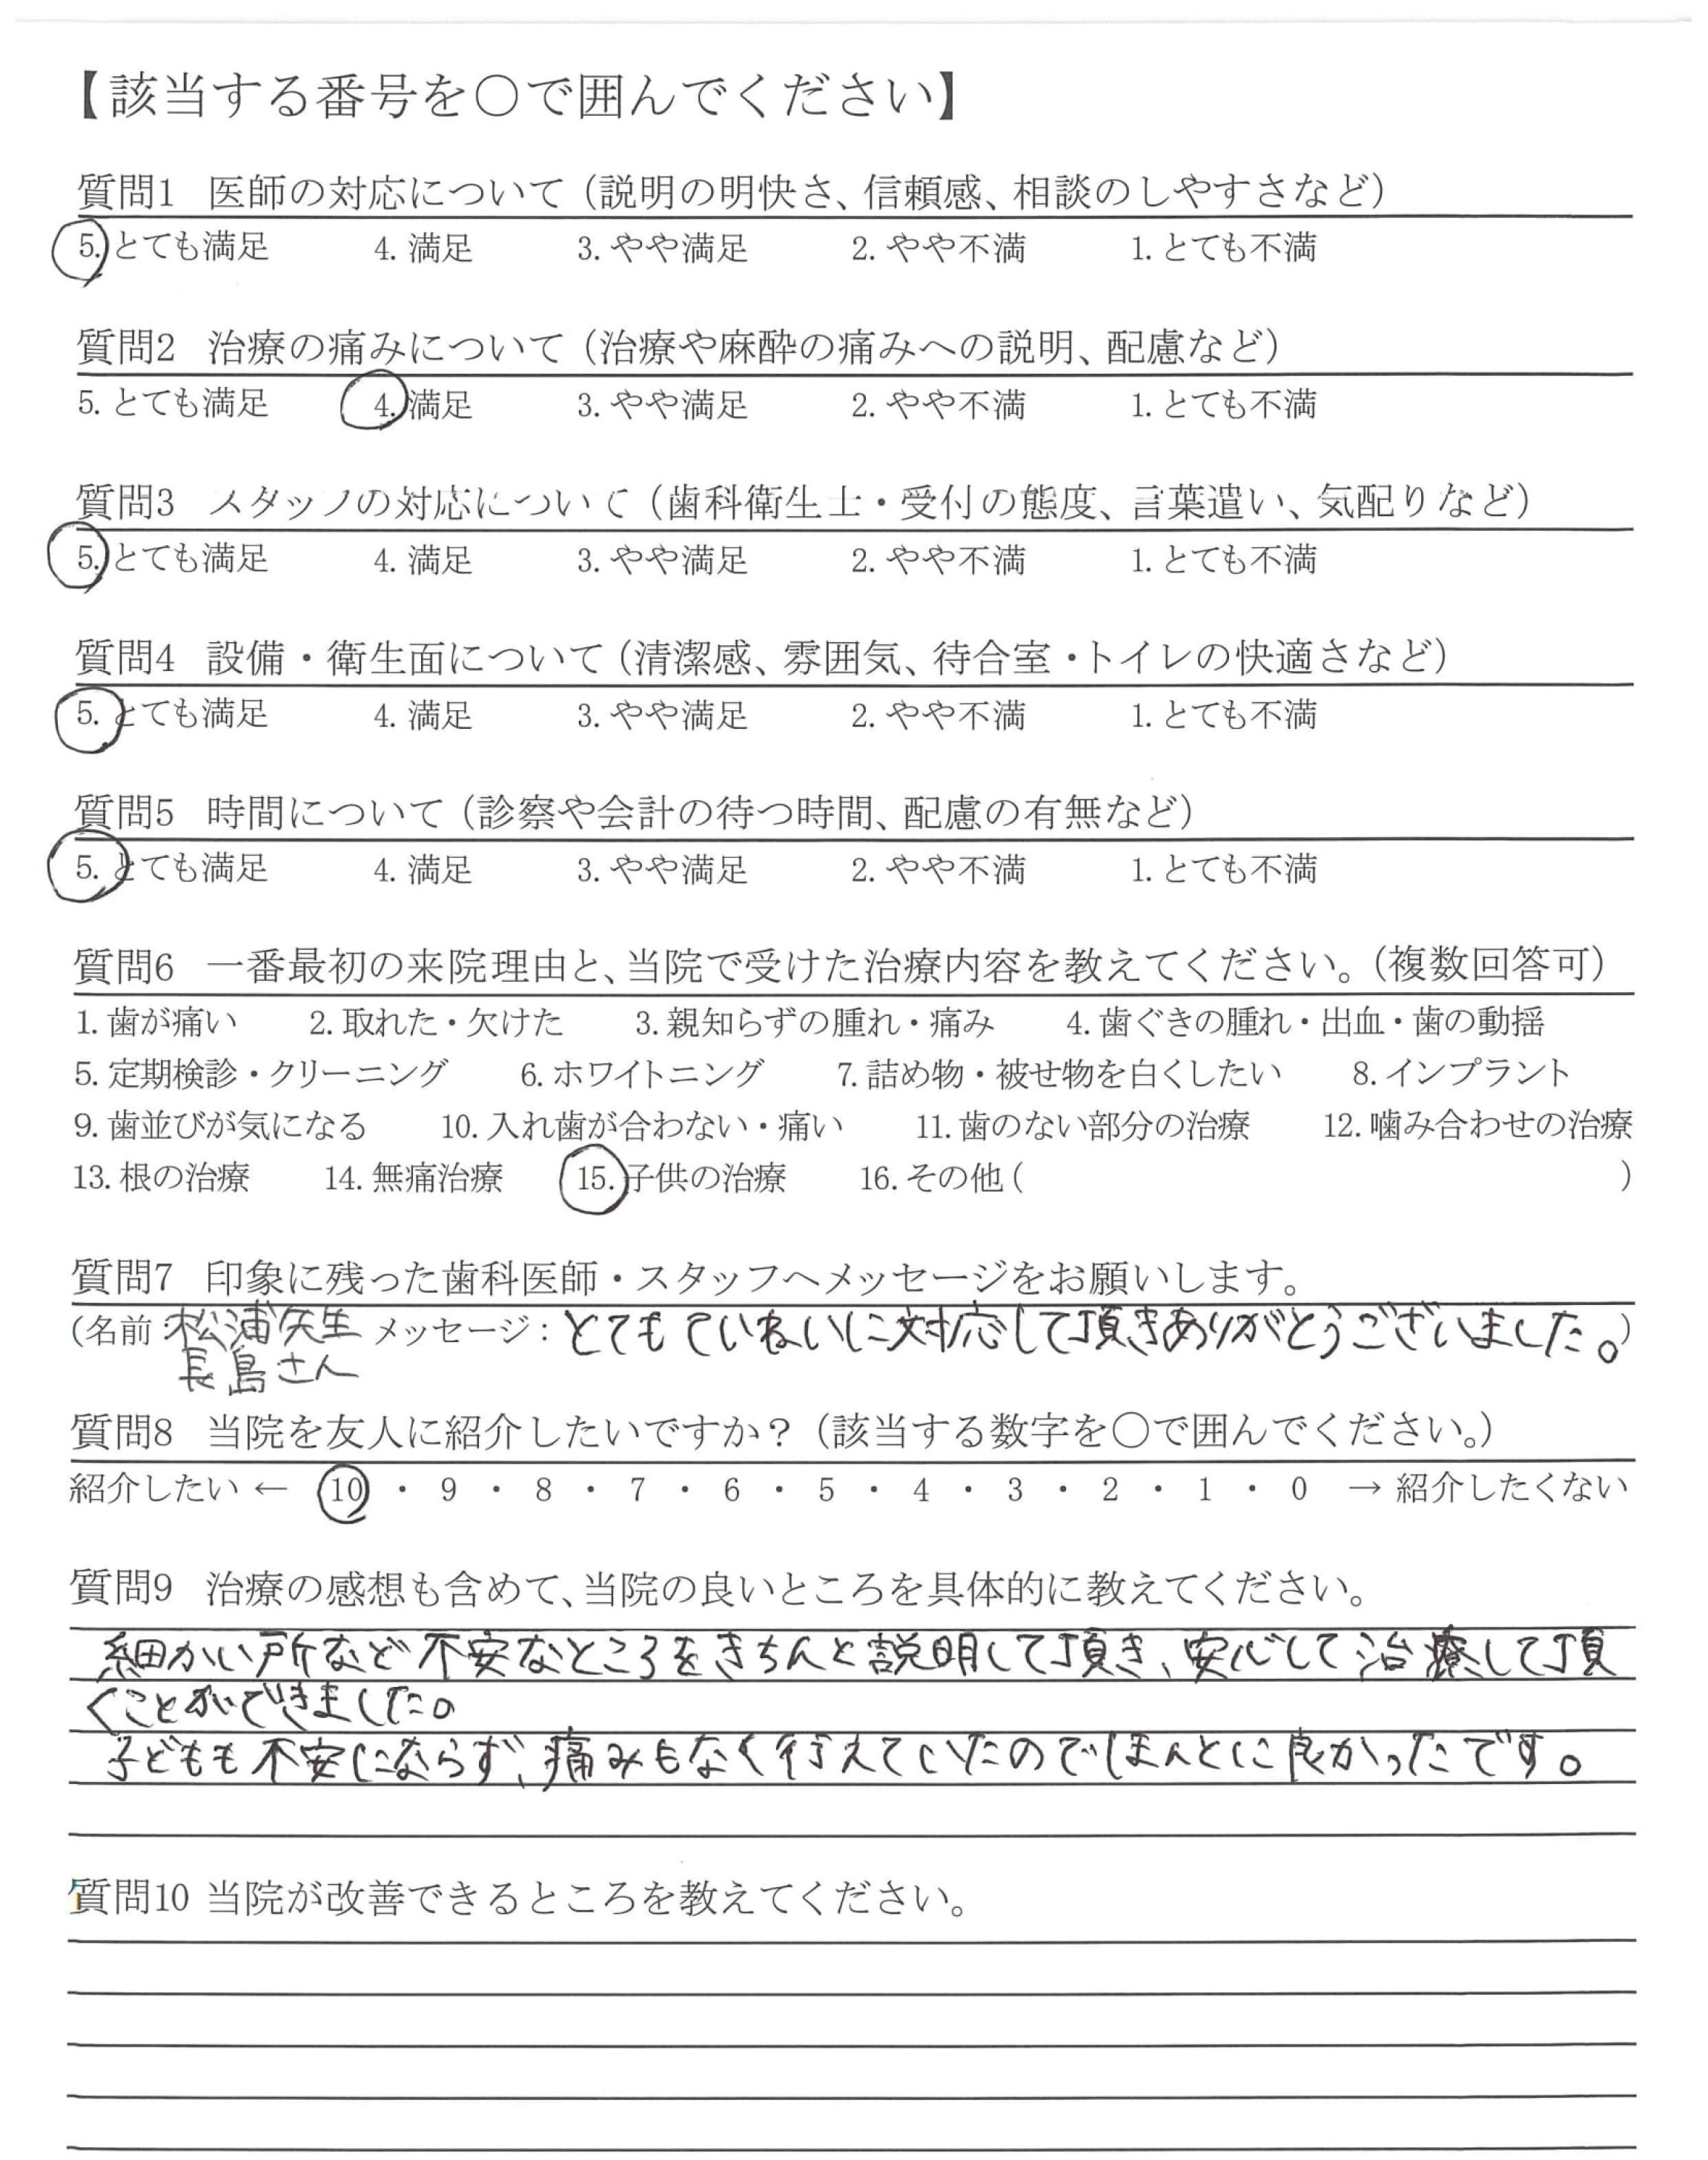 【該当する番号を○で囲んでください】
質問1 医師の対応について（説明の明快さ、信頼感、相談のしやすさなど）
5. とても満足 4. 満足 3. やや満足 2. やや不満 1. とても不満
質問2 治療の痛みについて（治療や麻酔の痛みへの説明、配慮など）
5. とても満足 4. 満足 3. やや満足 2. やや不満 1. とても不満
質問3 スタッフの対応について（歯科衛生士・受付の態度、言葉遣い、気配りなど）
5. とても満足 4. 満足 3. やや満足 2. やや不満 1. とても不満
質問4 設備・衛生面について（清潔感、雰囲気、待合室・トイレの快適さなど）
5. とても満足 4. 満足 3. やや満足 2. やや不満 1. とても不満
質問5 時間について（診察や会計の待つ時間、配慮の有無など）
5. とても満足 4. 満足 3. やや満足 2. やや不満 1. とても不満
質問6 一番最初の来院理由と、当院で受けた治療内容を教えてください。（複数回答可）
1. 歯が痛い 2. 取れた・欠けた 3. 親知らずの腫れ・痛み 4. 歯ぐきの腫れ・出血・歯の動揺
5. 定期検診・クリーニング 6. ホワイトニング 7. 詰め物・被せ物を白くしたい 8. インプラント
9. 歯並びが気になる 10. 入れ歯が合わない・痛い 11. 歯のない部分の治療 12. 噛み合わせの治療
13. 根の治療 14. 無痛治療 15. 子供の治療 16. その他（ ）
質問7 印象に残った歯科医師・スタッフへメッセージをお願いします。
（名前：松浦先生 メッセージ：とてもていねいに対応して頂きありがとうございました。）
長島さん
質問8 当院を友人に紹介したいですか？（該当する数字を○で囲んでください。）
紹介したい ← 10 ・ 9 ・ 8 ・ 7 ・ 6 ・ 5 ・ 4 ・ 3 ・ 2 ・ 1 ・ 0 → 紹介したくない
質問9 治療の感想も含めて、当院の良いところを具体的に教えてください。
細かい所など不安なところをきちんと説明して頂き、安心して治療して頂
くことができました。
子どもも不安にならず、痛みもなく行えていたのでほんとに良かったです。
質問10 当院が改善できるところを教えてください。